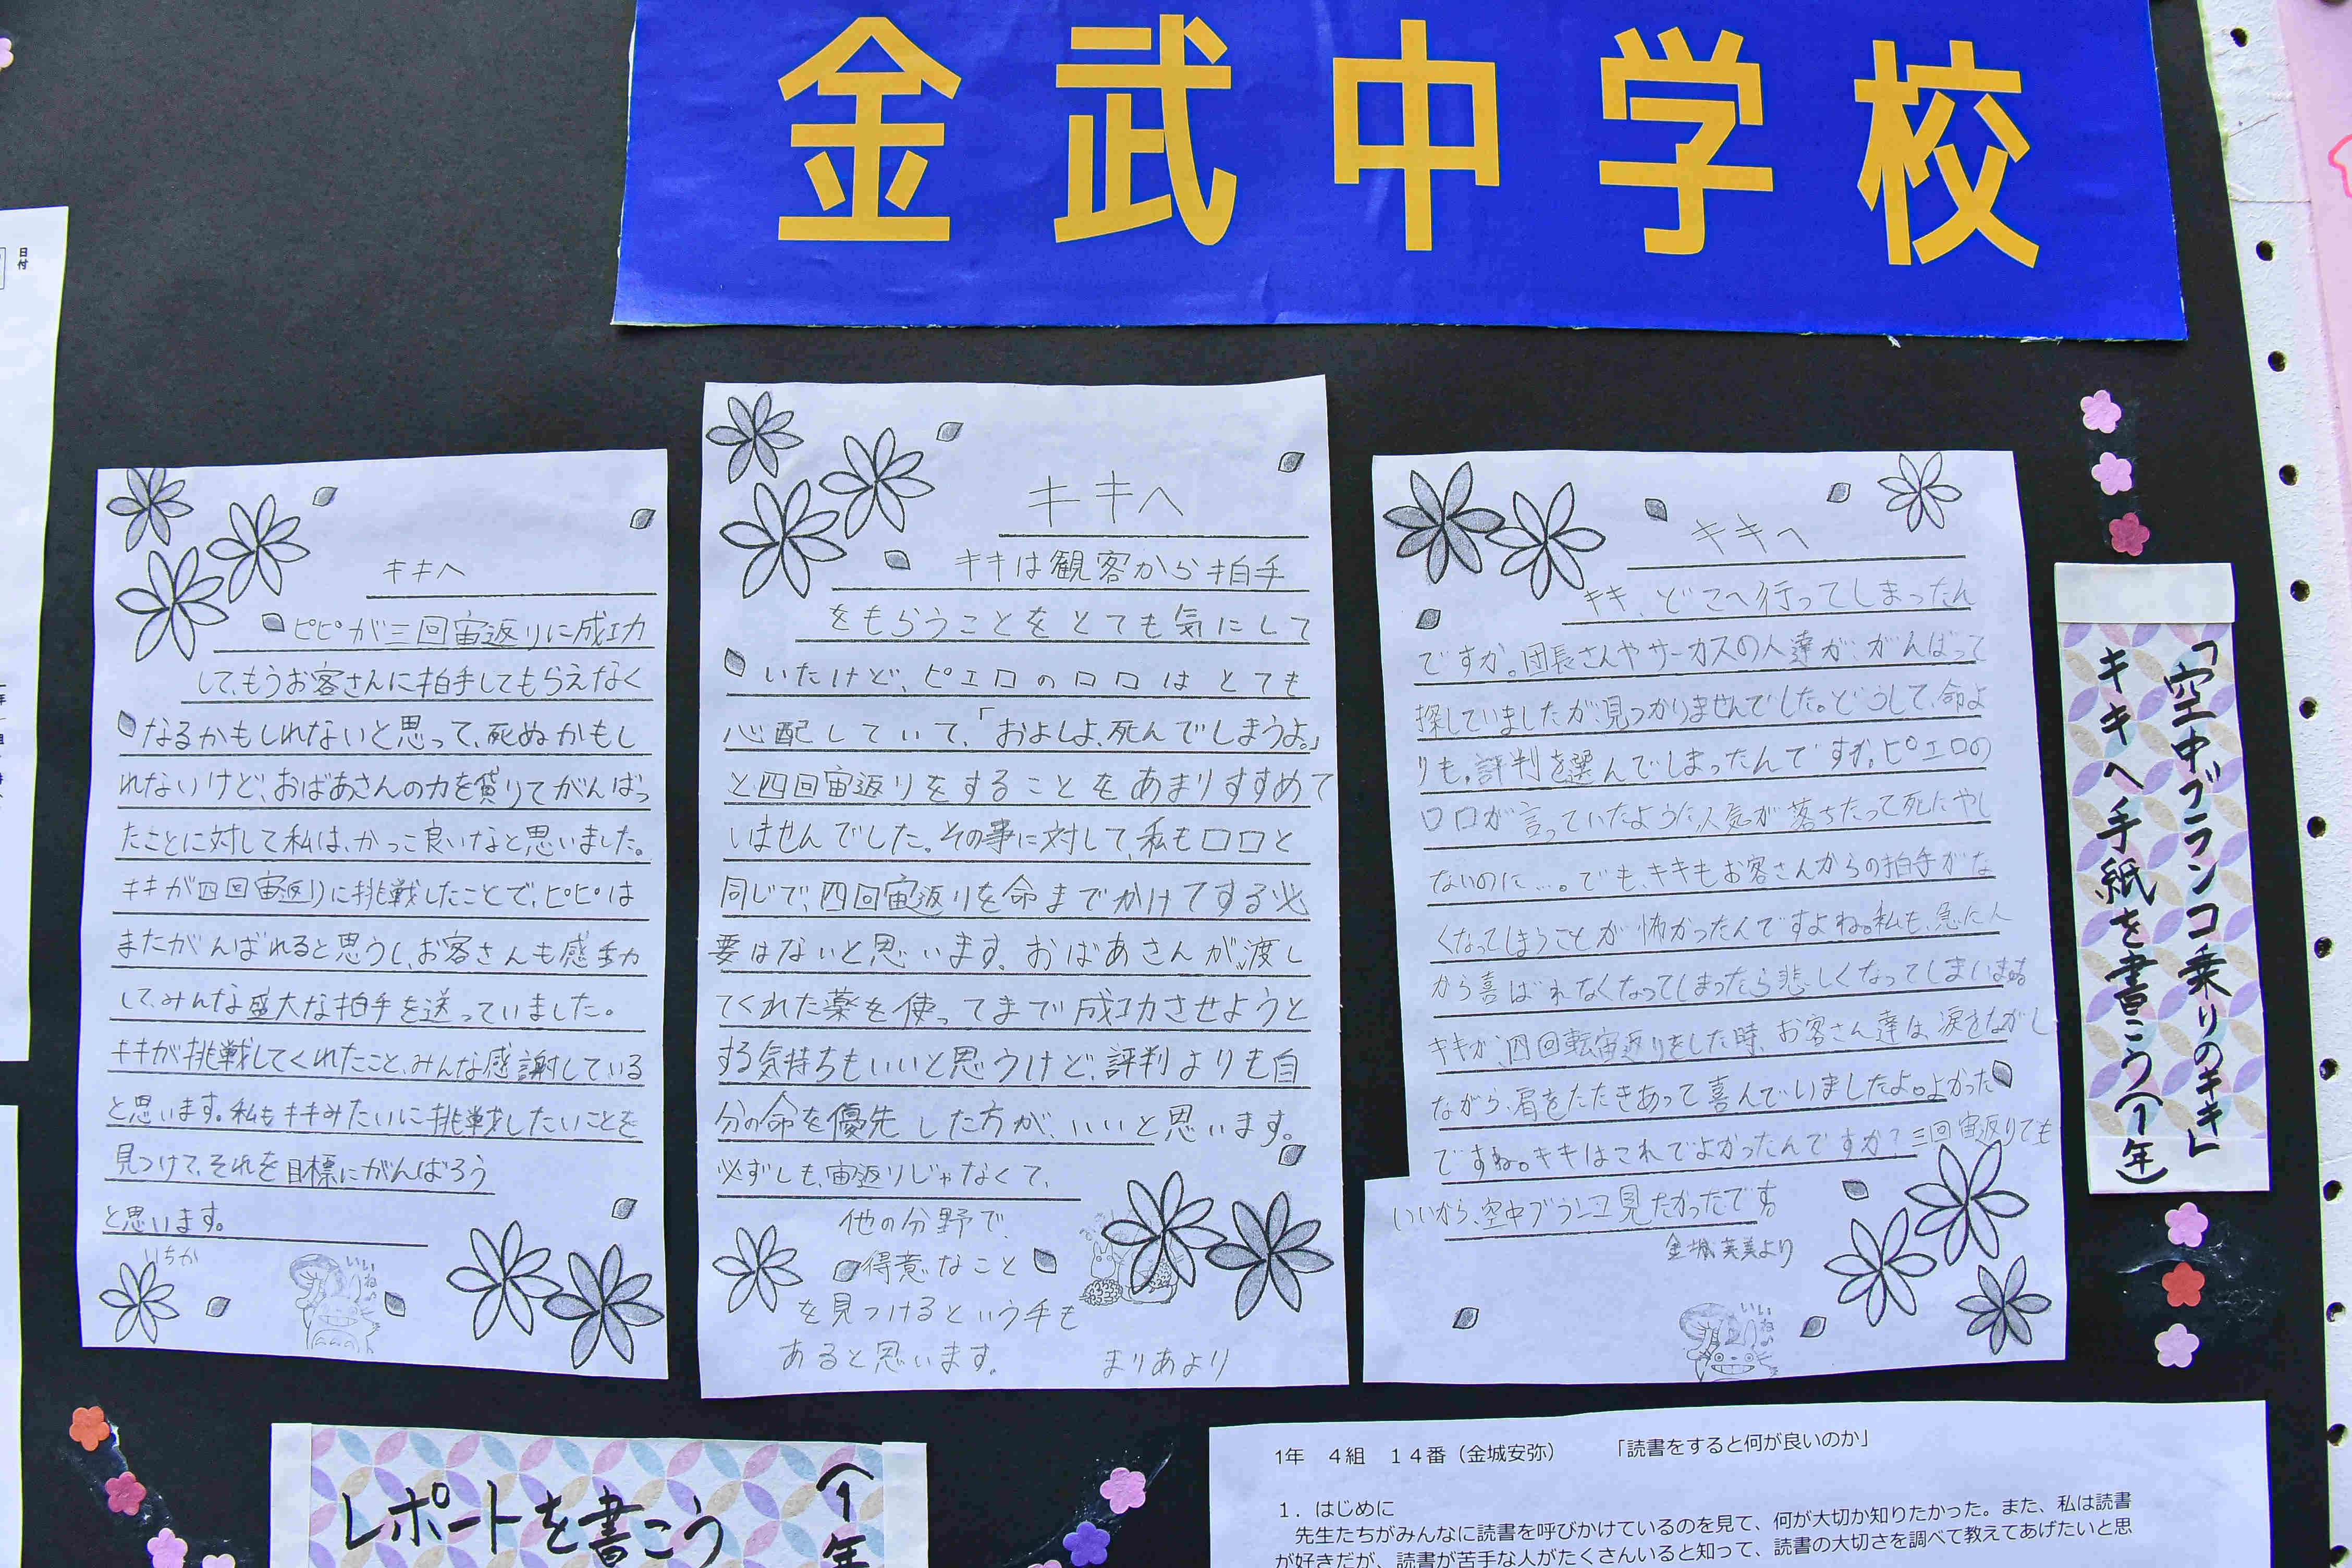 金武中学校
キキへ
ピピが三回宙返りに成功
して、もうお客さんに拍手してもらえなく
なるかもしれないと思って、死ぬかもし
れないけど、おばあさんの力を貸りてがんばっ
たことに対して私は、かっこ良いなと思いました。
キキが四回宙返りに挑戦したことで、ピピは
またがんばれると思うし、お客さんも感動
して、みんな盛大な拍手を送っていました。
キキが挑戦してくれたこと、みんな感謝している
と思います。私もキキみたいに挑戦したいことを
見つけて、それを目標にがんばろう
と思います。
いちか
いいね
キキへ
キキは観客から拍手
をもらうことをとても気にして
いたけど、ピエロのロロはとても
心配していて、「およしよ、死んでしまうよ。」
と四回宙返りをすることをあまりすすめて
いませんでした。その事に対して、私もロロと
同じで、四回宙返りを命までかけてする必
要はないと思います。おばあさんが渡し
てくれた薬を使ってまで成功させようと
する気持ちもいいと思うけど、評判よりも自
分の命を優先した方が、いいと思います。
必ずしも、宙返りじゃなくて、
他の分野で、
得意なこと
を見つけるという手も
あると思います。
まりあより
キキへ
キキ、どこへ行ってしまったん
ですか。団長さんやサーカスの人達が、がんばって
探していましたが、見つかりませんでした。どうして、命よ
りも、評判を選んでしまったんですか。ピエロの
ロロが言っていたように、人気が落ちたって死にやし
ないのに…。でも、キキもお客さんからの拍手がな
くなってしまうことが怖かったんですよね。私も、急に人
から喜ばれなくなってしまったら悲しくなってしまいますね
キキが、四回転宙返りをした時、お客さん達は、涙をながし
ながら、肩をたたきあって喜んでいましたよ。よかった
ですね。キキはこれでよかったんですか？三回宙返りでも
いいから、空中ブランコ見たかったです
金城英美より
いいね
「空中ブランコ乗りのキキ」
キキへ手紙を書こう（1年）
レポートを書こう（1年
1年　4組　14番（金城安弥）　「読書をすると何が良いのか」
1．はじめに
先生たちがみんなに読書を呼びかけているのを見て、何が大切か知りたかった。また、私は読書
が好きだが、読書が苦手な人がたくさんいると知って、読書の大切さを調べて教えてあげたいと思
日付